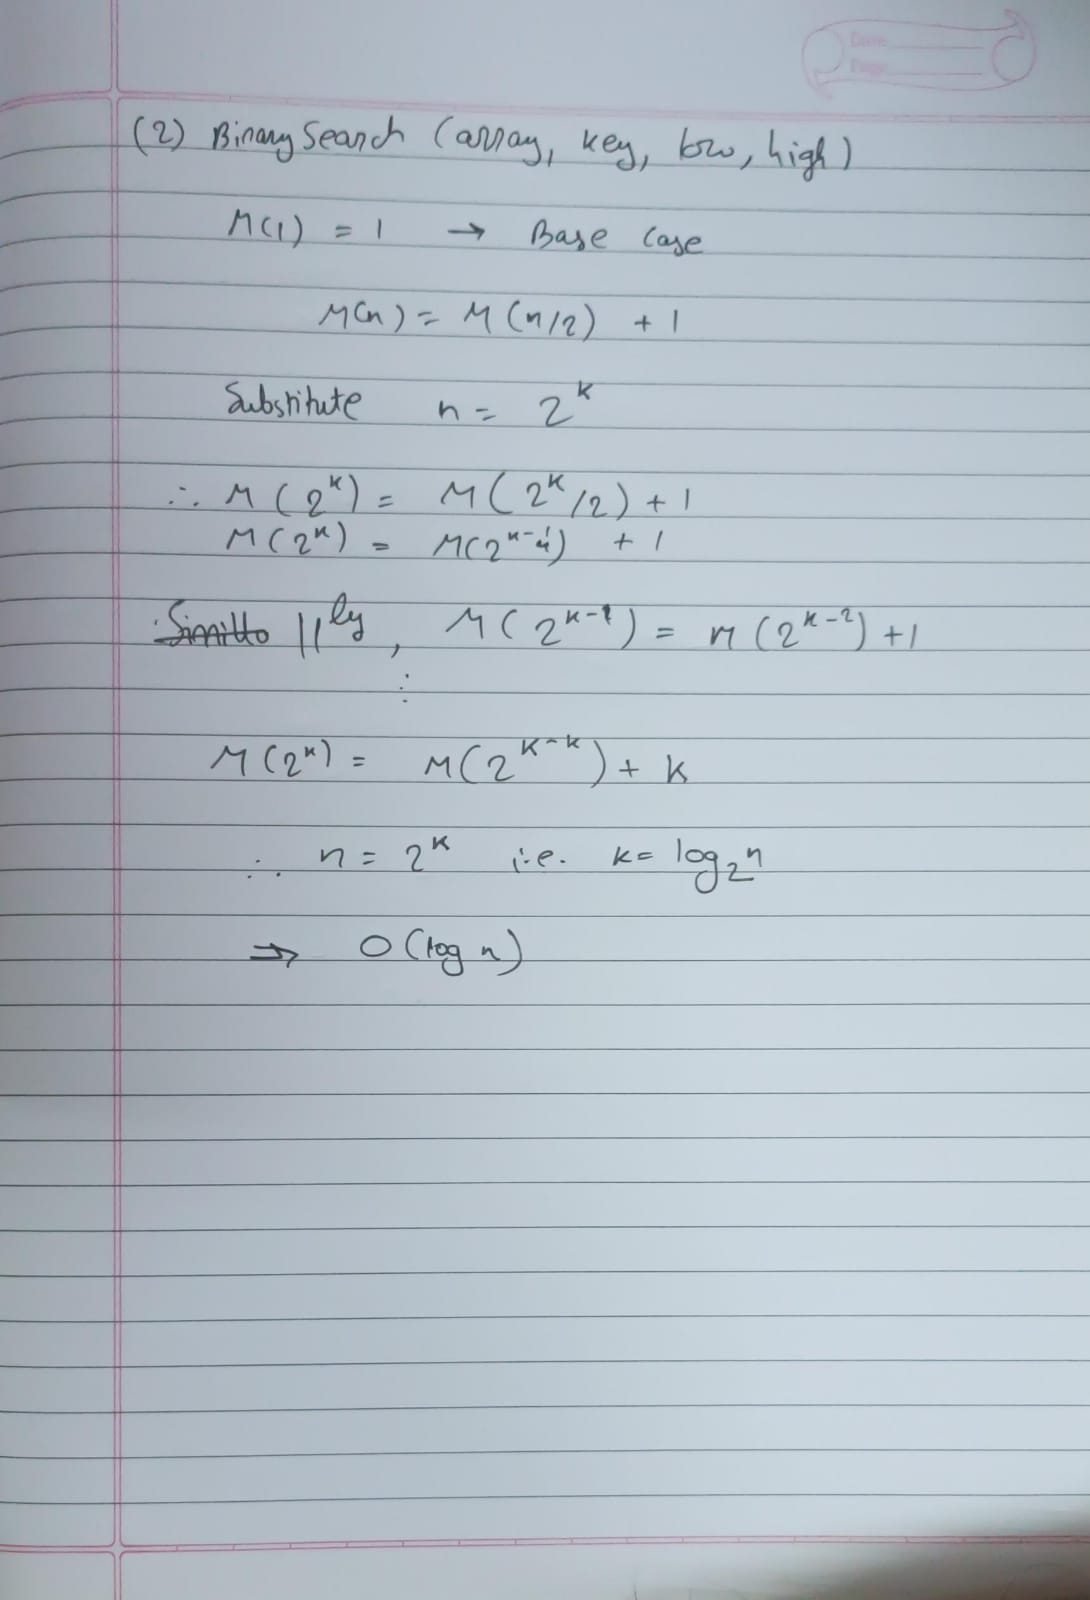 Date
Page
(2) Binary Search (array, key, low, high)
M(1) = 1 → Base Case
M(n) = M(n/2) + 1
Substitute n = 2^k
∴ M(2^k) = M(2^k/2) + 1
M(2^k) = M(2^k-1) + 1
||^ly, M(2^k-1) = M(2^k-2) + 1
⋮
M(2^k) = M(2^k-k) + k
∴ n = 2^k i.e. k = log₂n
⇒ O(log n)